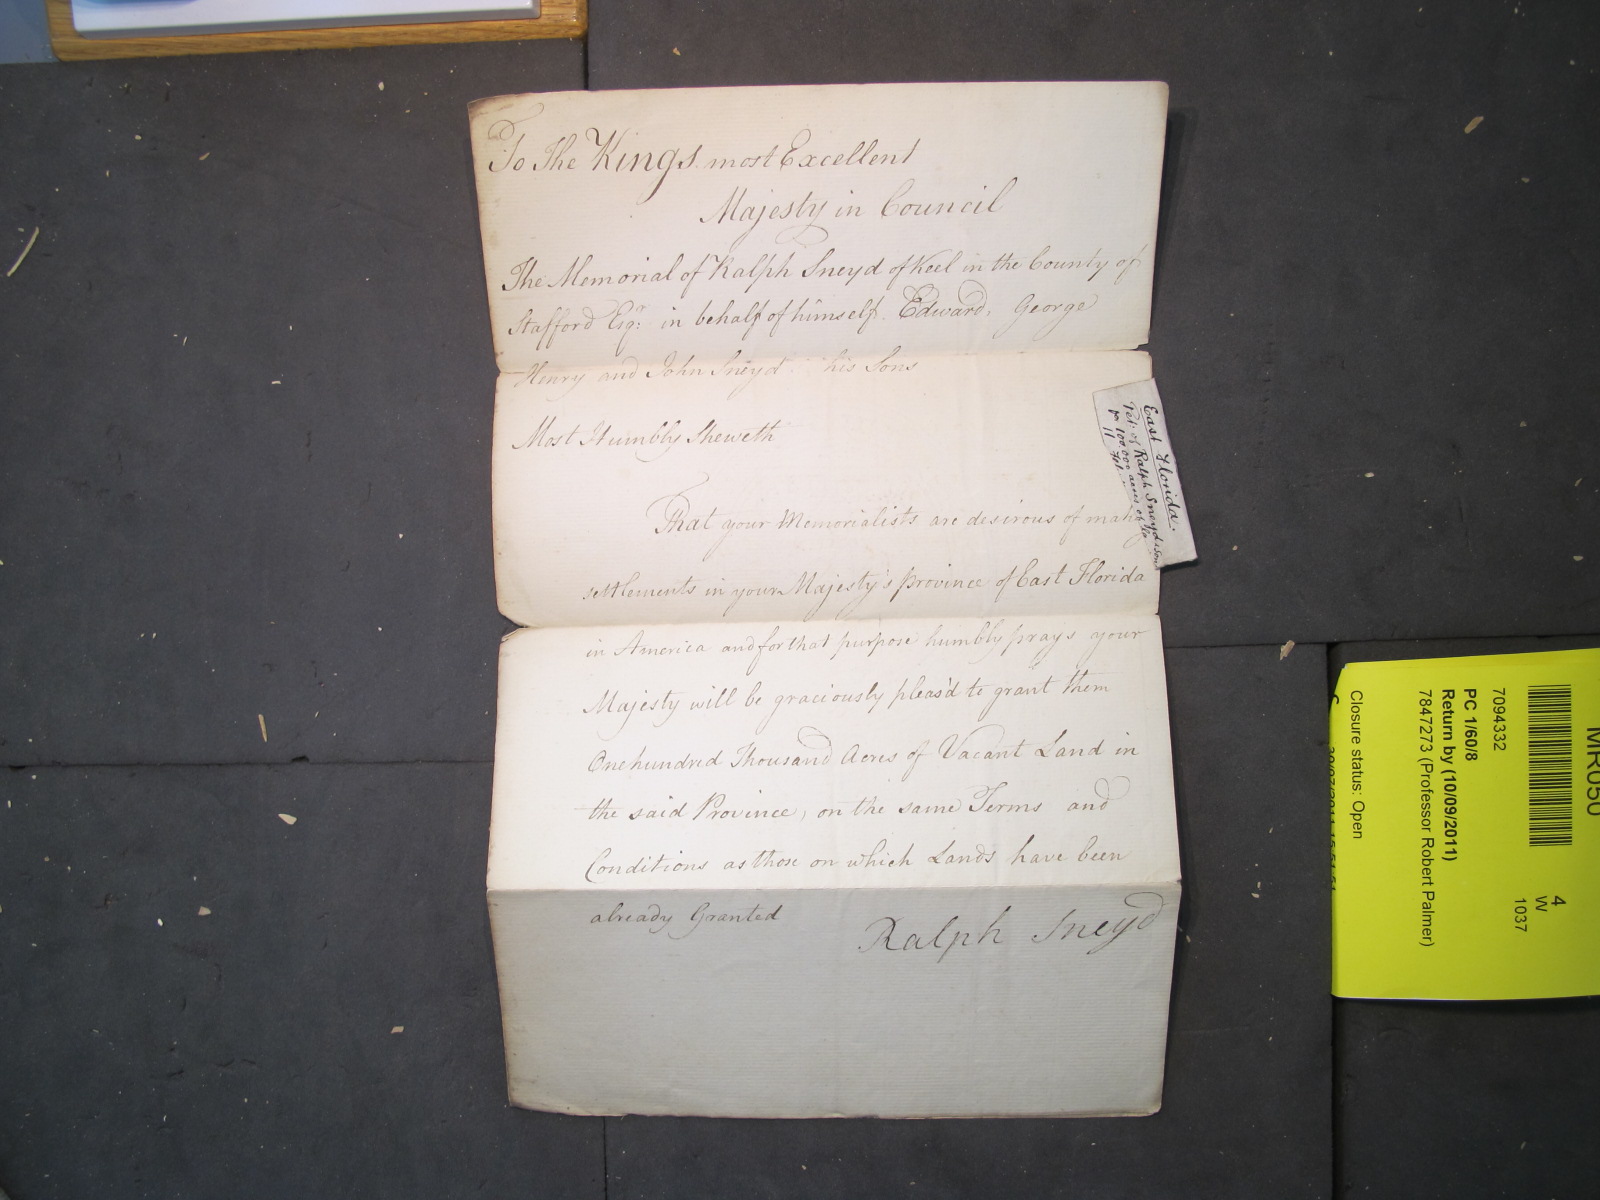 To The Kings most Excellent
Majesty in Council
The Memorial of Ralph Sneyd of Keel in the County of
Stafford Esqr: in behalf of himself. Edward, George
Henry and John Sneyd his Sons
Most Humbly Sheweth
That your Memorialists are desirous of making
settlements in your Majesty's province of East Florida
in America and for that purpose humbly prays your
Majesty will be graciously pleas'd to grant them
One hundred Thousand Acres of Vacant Land in
the said Province, on the same Terms and
Conditions as those on which Lands have been
already Granted
Ralph Sneyd
East Florida.
Pet: of Ralph Sneyd & Sons
100,000 acres of
11
MR050
7094332
PC 1/60/8
Return by (10/09/2011)
7847273 (Professor Robert Palmer)
Closure status: Open
4
W
1037